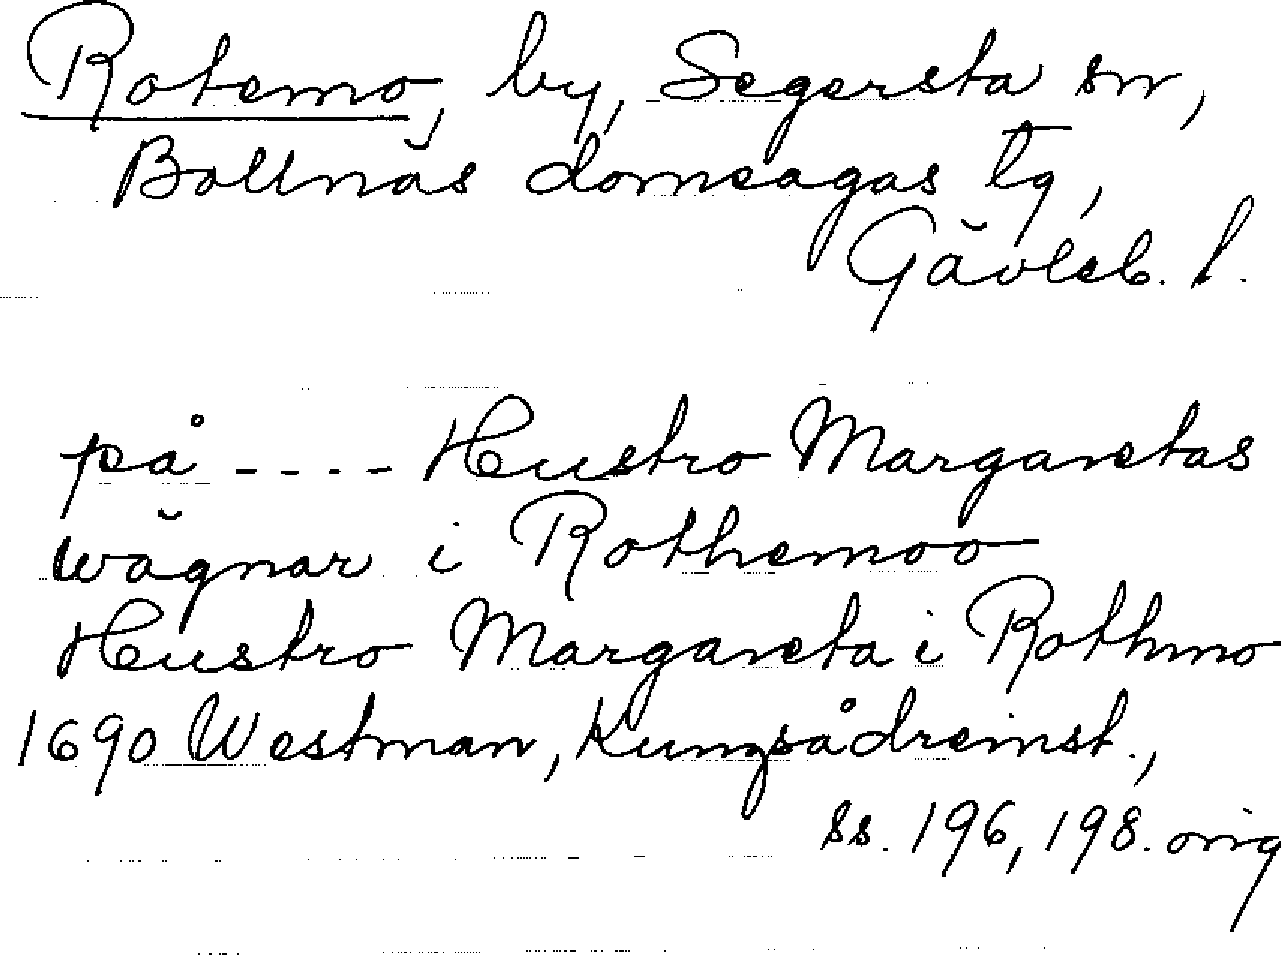 Rotemo, by, Segersta sn,
Bollnäs domsagas tg,
Gävleb. l.
på ---- Hustro Margaretas
wägnar i Rothemoo
Hustro Margareta i Rothmo
1690 Westman, Kungsådreinst.,
ss. 196, 198. orig